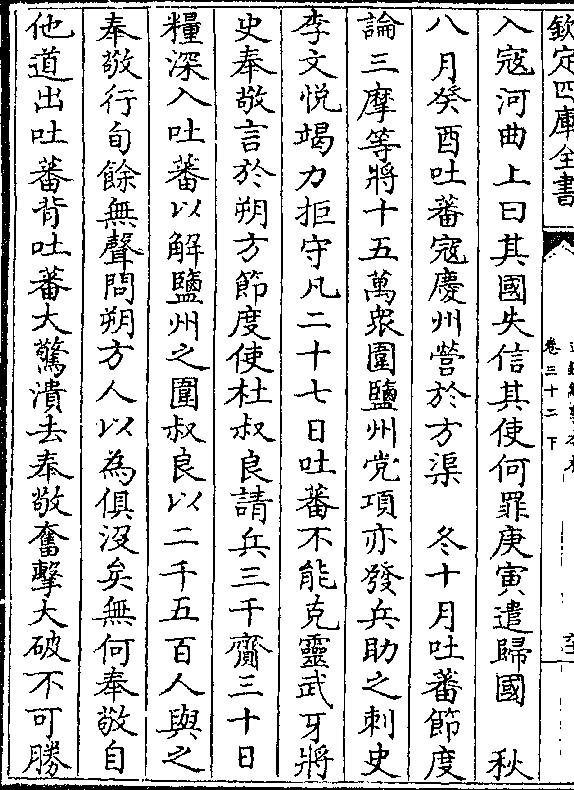 欽定四庫全書
卷三十二下
入寇河曲上曰其國失信其使何罪庚寅遣歸國　秋
八月癸酉吐蕃寇慶州營於方渠　冬十月吐蕃節度
論三摩等將十五萬衆圍鹽州党項亦發兵助之刺史
李文悅竭力拒守凡二十七日吐蕃不能克靈武牙將
史奉敬言於朔方節度使杜叔良請兵三千齎三十日
糧深入吐蕃以解鹽州之圍叔良以二千五百人與之
奉敬行旬餘無聲問朔方人以為俱沒矣無何奉敬自
他道出吐蕃背吐蕃大驚潰去奉敬奮擊大破不可勝